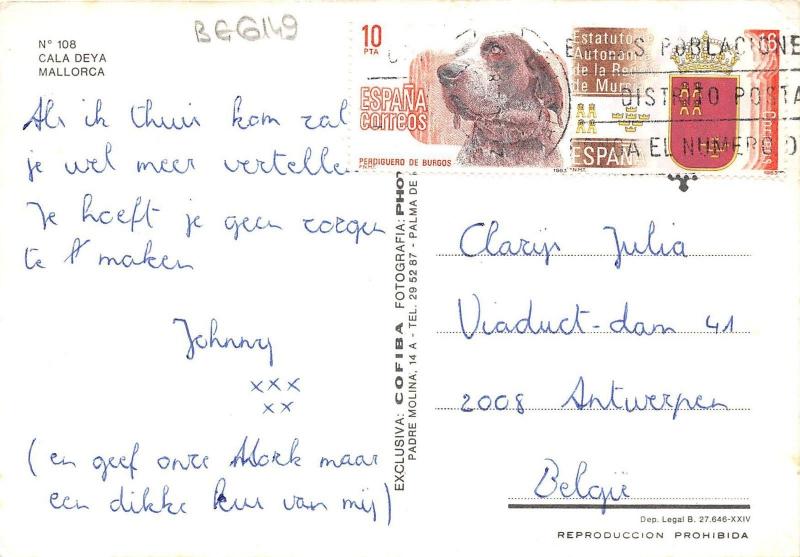 BEG149
N° 108
CALA DEYA
MALLORCA
Als ik thuis kom zal
je wel meer vertelle
Je hoeft je geen zorgen
te maken
Johnny
xxx
xx
(en geef onze Mork maar
een dikke kus van mij)
EXCLUSIVA: COFIBA FOTOGRAFIA: PHO
PADRE MOLINA, 14 A - TEL. 29 52 87 - PALMA DE
10
PTA
ESPAÑA
correos
PERDIGUERO DE BURGOS
1983
Estatuto
Autonomía
de la Reg
de Mur
ESPAÑ
16
Correos
POBLACIONE
DISTRITO POSTA
GA EL NUMERO D
Clarijs Julia
Viaduct-dam 41
2008 Antwerpen
België
Dep. Legal B. 27.646-XXIV
REPRODUCCION PROHIBIDA